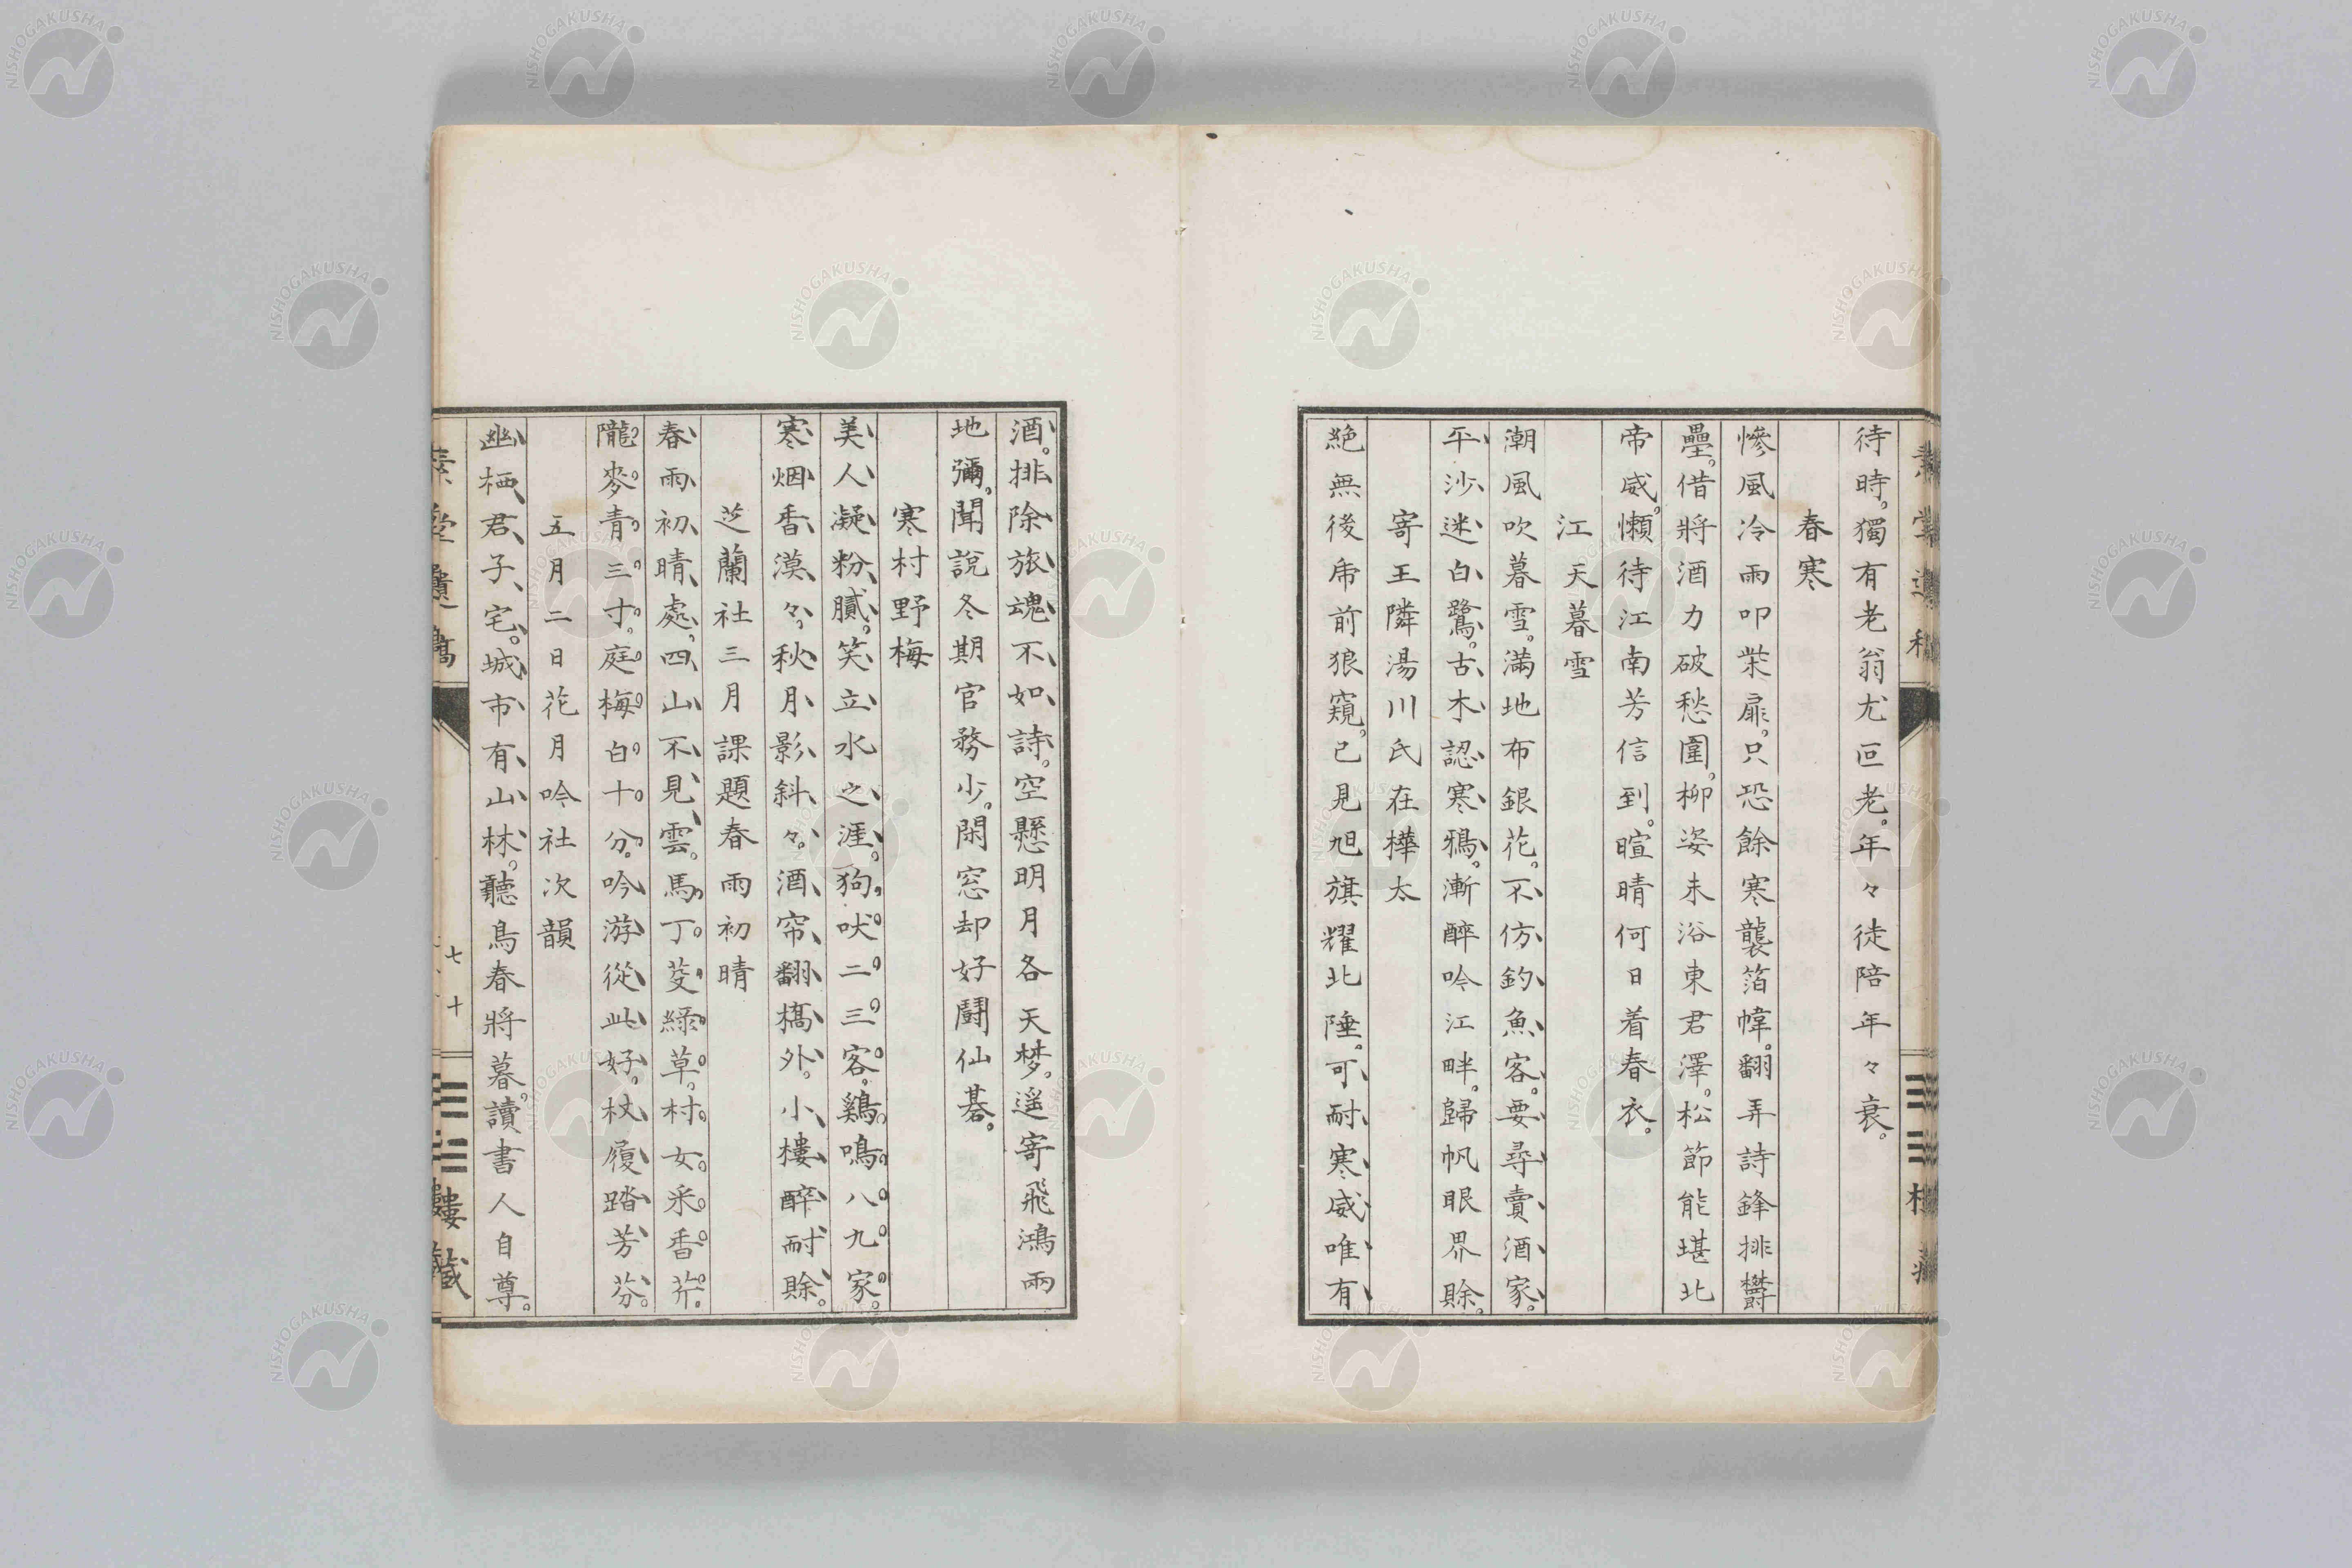 待時。獨有老翁尤叵老。年々徒陪年々衰。
春寒
慘風冷雨叩柴扉。只恐餘寒襲箔幃。翻弄詩鋒排欝
壘。借將酒力破愁圍。柳姿未浴東君澤。松節能堪北
帝威。懶待江南芳信到。暄晴何日着春衣。
江天暮雪
潮風吹暮雪。滿地布銀花。不仿釣魚客。要尋賣酒家。
平沙迷白鷺。古木認寒鴉。漸醉吟江畔。歸帆眼界賒。
寄王隣湯川氏在樺太
絕無後帍前狼窺。已見旭旗耀北陲。可耐寒威唯有
酒。排除旅魂不如詩。空懸明月各天梦。遥寄飛鴻兩
地彌。聞說冬期官務少。閑窓却好鬪仙碁。
寒村野梅
美人凝粉膩。笑立水之涯。狗吠二三客。鷄鳴八九家。
寒烟香漠々。秋月影斜々。酒帘翻橋外。小樓醉耐賒。
芝蘭社三月課題春雨初晴
春雨初晴處。四山不見雲。馬丁芟綠草。村女釆香芹。
隴麥青三寸。庭梅白十分。吟游從此好。杖履踏芳芬。
五月二日花月吟社次韻
幽栖君子宅。城市有山林。聽鳥春將暮。讀書人自尊。
七十
NISHOGAKUSHA